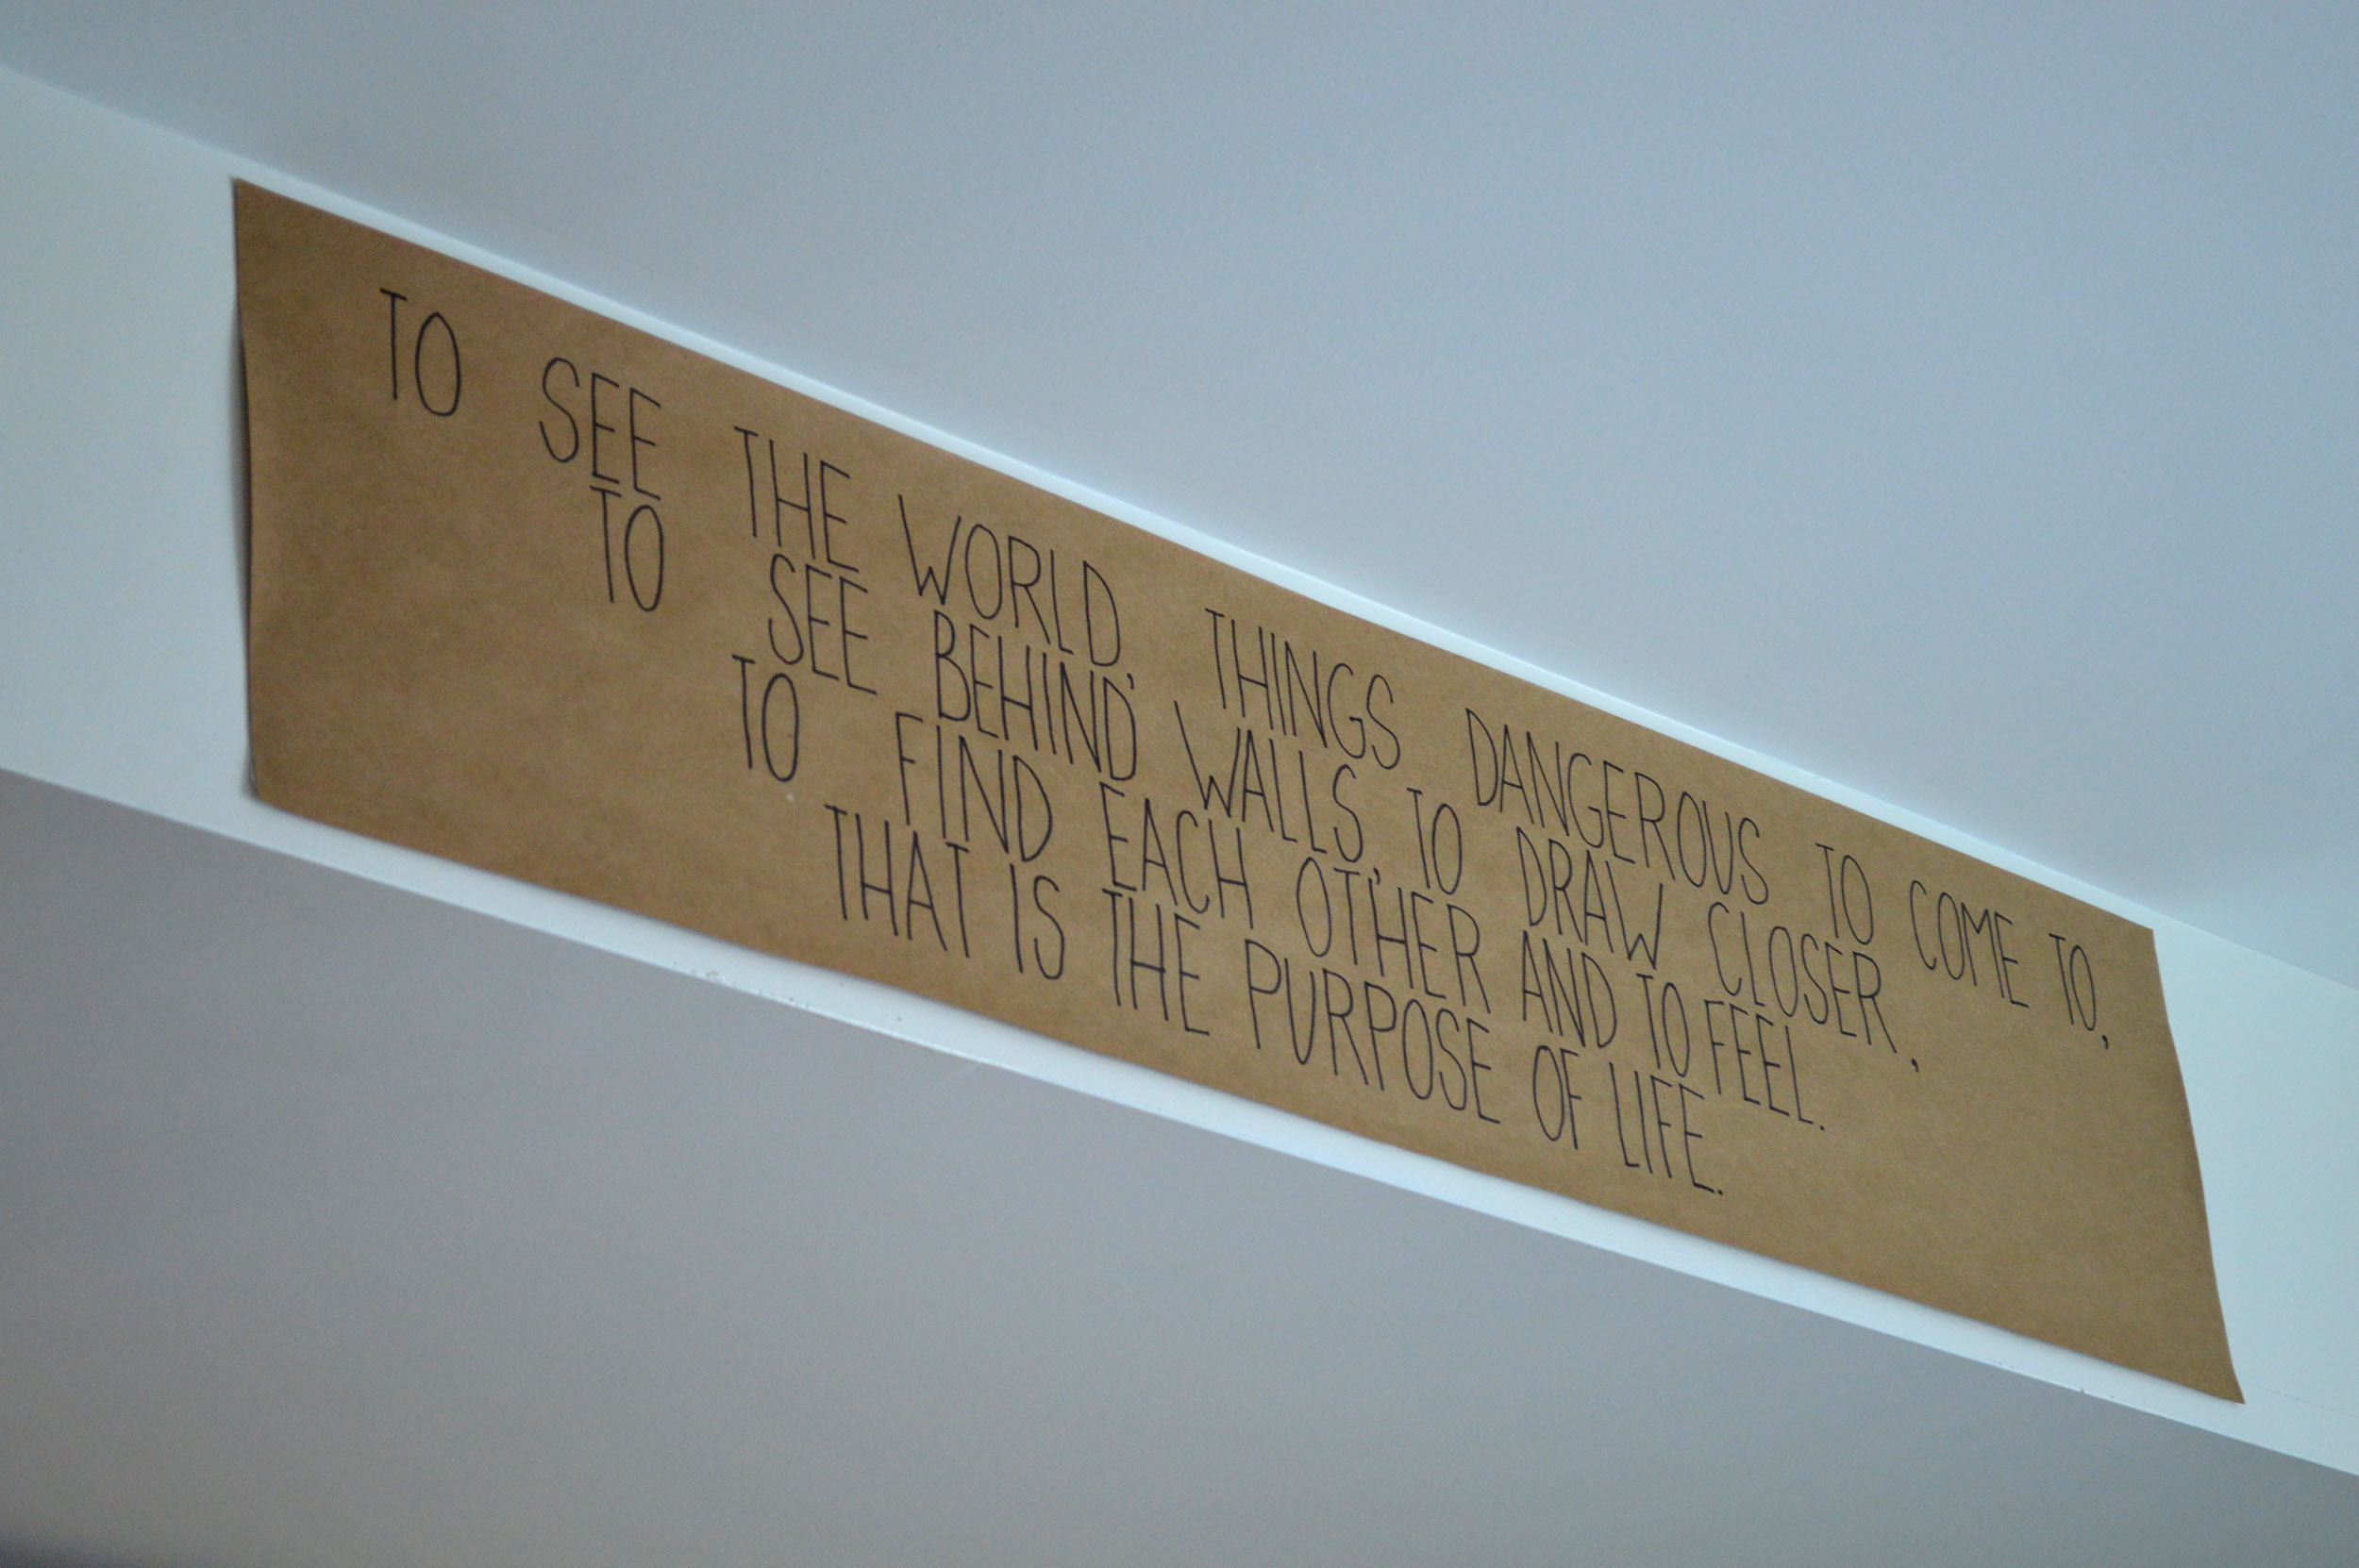 TO SEE THE WORLD, THINGS DANGEROUS TO COME TO,
TO SEE BEHIND WALLS, TO DRAW CLOSER,
TO FIND EACH OTHER AND TO FEEL.
THAT IS THE PURPOSE OF LIFE.